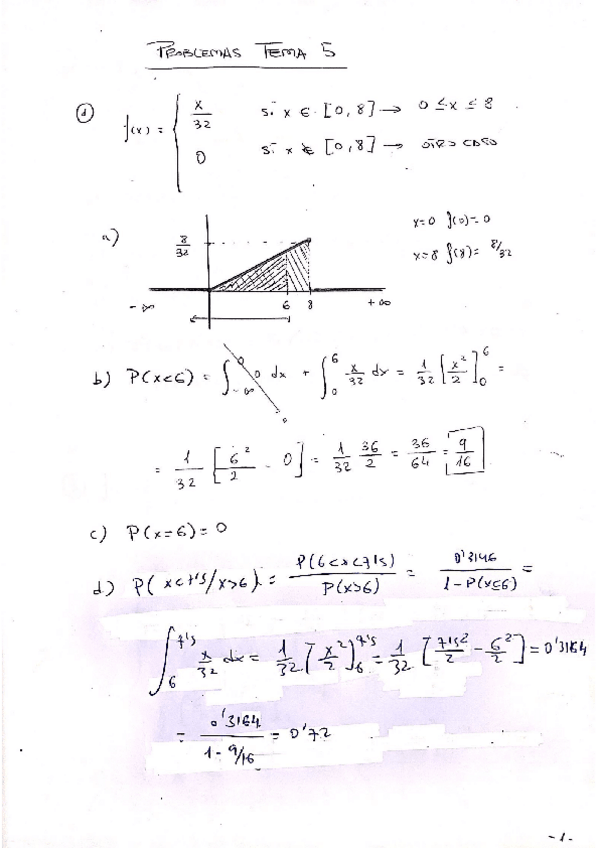 PROBLEMAS TEMA 5
① f(x) = { x/32 si x ∈ [0,8] → 0 ≤ x ≤ 8
0 si x ∉ [0,8] → OTRO CASO
a) 8/32 x=0 f(0)=0
x=8 f(8)= 8/32
-∞ 6 8 +∞
b) P(x<6) = ∫_{-∞}^{0} 0 dx + ∫_{0}^{6} x/32 dx = 1/32 [x²/2]_{0}^{6} =
= 1/32 [6²/2 - 0] = 1/32 36/2 = 36/64 = 9/16
c) P(x=6)=0
d) P(x<7'5/x>6) = P(6<x<7'5)/P(x>6) = 0'3146/1-P(x≤6) =
∫_{6}^{7'5} x/32 dx = 1/32 [x²/2]_{6}^{7'5} = 1/32 [7'5²/2 - 6²/2] = 0'3164
= 0'3164/1-9/16 = 0'72
-1-